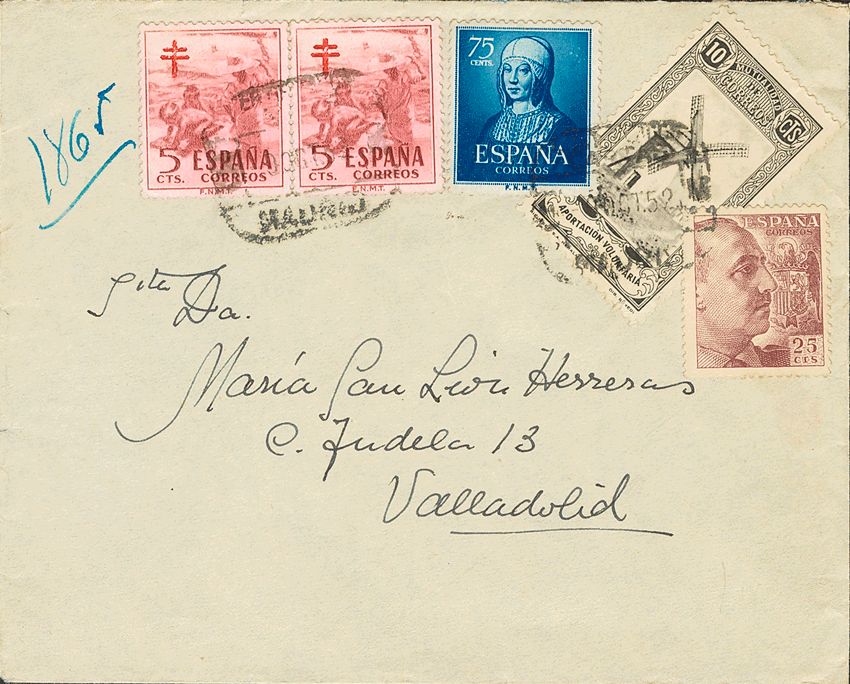 186
5 ESPAÑA
CTS. CORREOS
F.N.M.T.
5 ESPAÑA
CTS. CORREOS
F.N.M.T.
75
CENTS.
ESPAÑA
CORREOS
F.N.M.T.
10
MUTUALIDAD
DE
CORREOS
CTS
APORTACIÓN VOLUNTARIA
MADRID
OCT 52
ESPAÑA
CORREOS
25
CTS
Srta Da.
María San León Herreras
C. Tudela 13
Valladolid